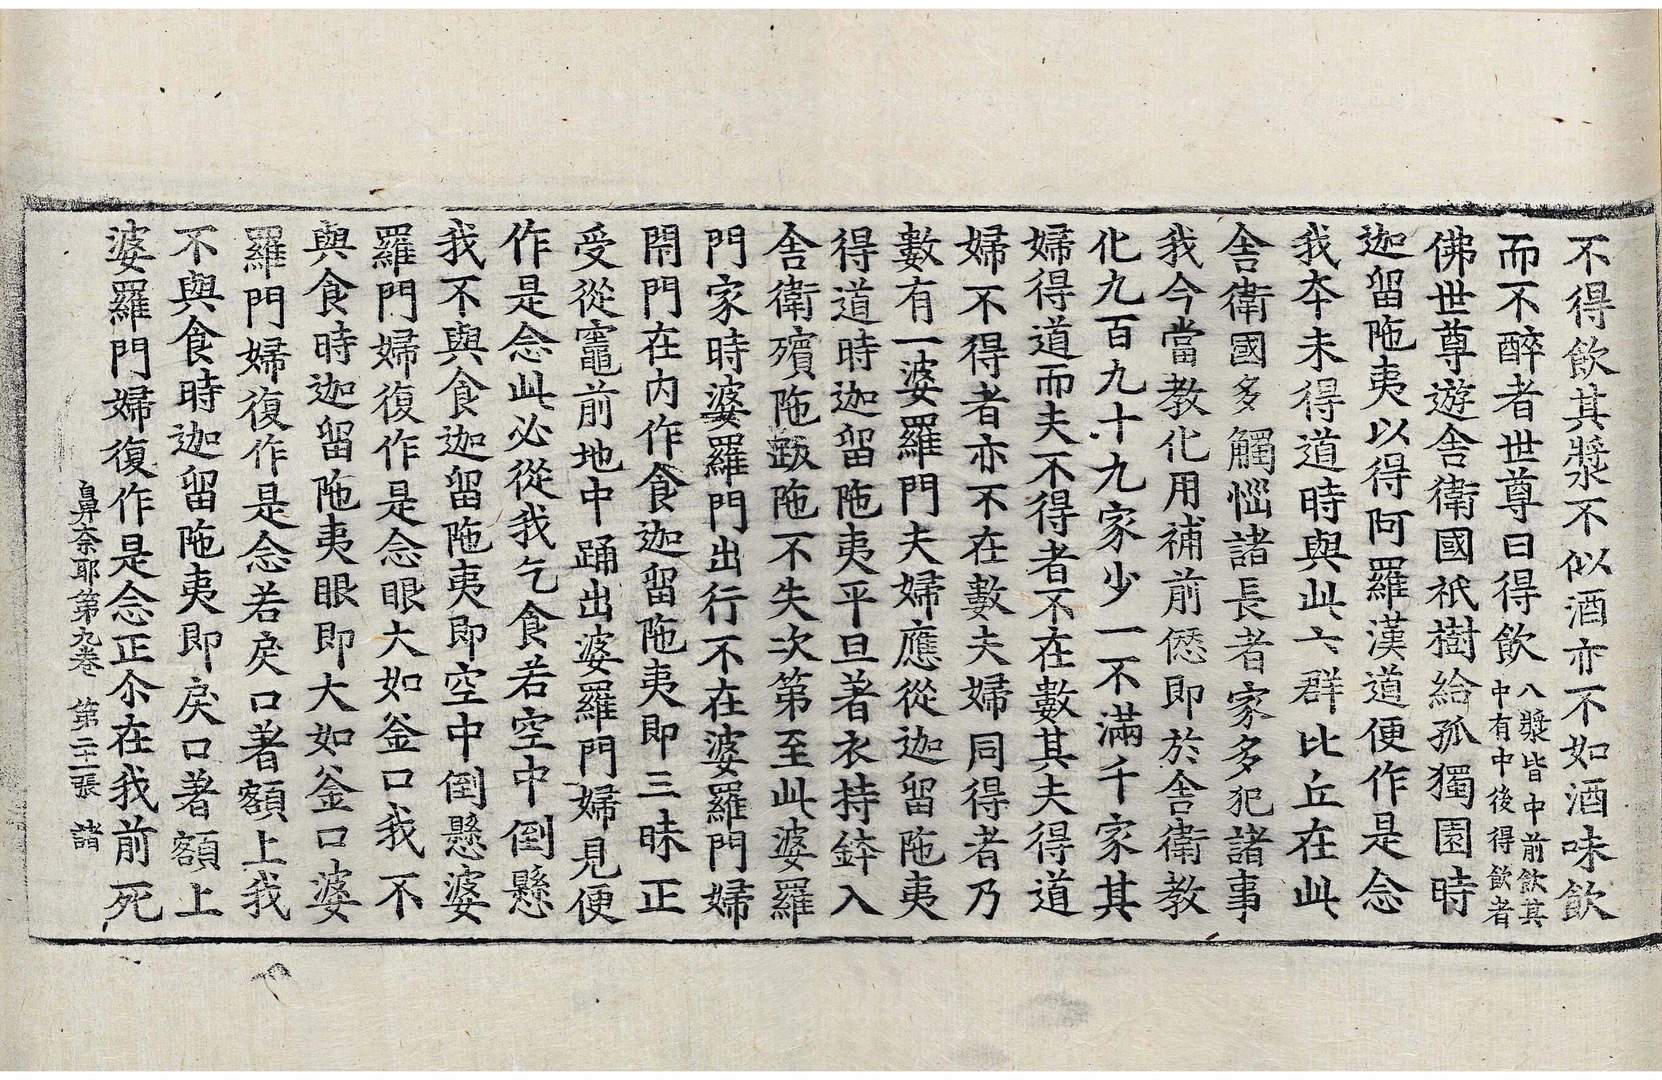 不得飲其漿不似酒亦不如酒味飲
而不醉者世尊曰得飲八漿皆中前飲其中有中後得飲者
佛世尊遊舍衛國祇樹給孤獨園時
迦留陁夷以得阿羅漢道便作是念
我本未得道時與此六群比丘在此
舍衛國多觸惱諸長者家多犯諸事
我今當教化用補前愆即於舍衛教
化九百九十九家少一不滿千家其
婦得道而夫不得者不在數其夫得道
婦不得者亦不在數夫婦同得者乃
數有一婆羅門夫婦應從迦留陁夷
得道時迦留陁夷平旦著衣持鉢入
舍衛殰陁䟦陁不失次第至此婆羅
門家時婆羅門出行不在婆羅門婦
閇門在內作食迦留陁夷即三昧正
受從竈前地中踊出婆羅門婦見便
作是念此必從我乞食若空中倒懸
我不與食迦留陁夷即空中倒懸婆
羅門婦復作是念眼大如釜口我不
與食時迦留陁夷眼即大如釜口婆
羅門婦復作是念若戾口著額上我
不與食時迦留陁夷即戾口著額上
婆羅門婦復作是念正尒在我前死
鼻奈耶第九卷 第二十一張 諸